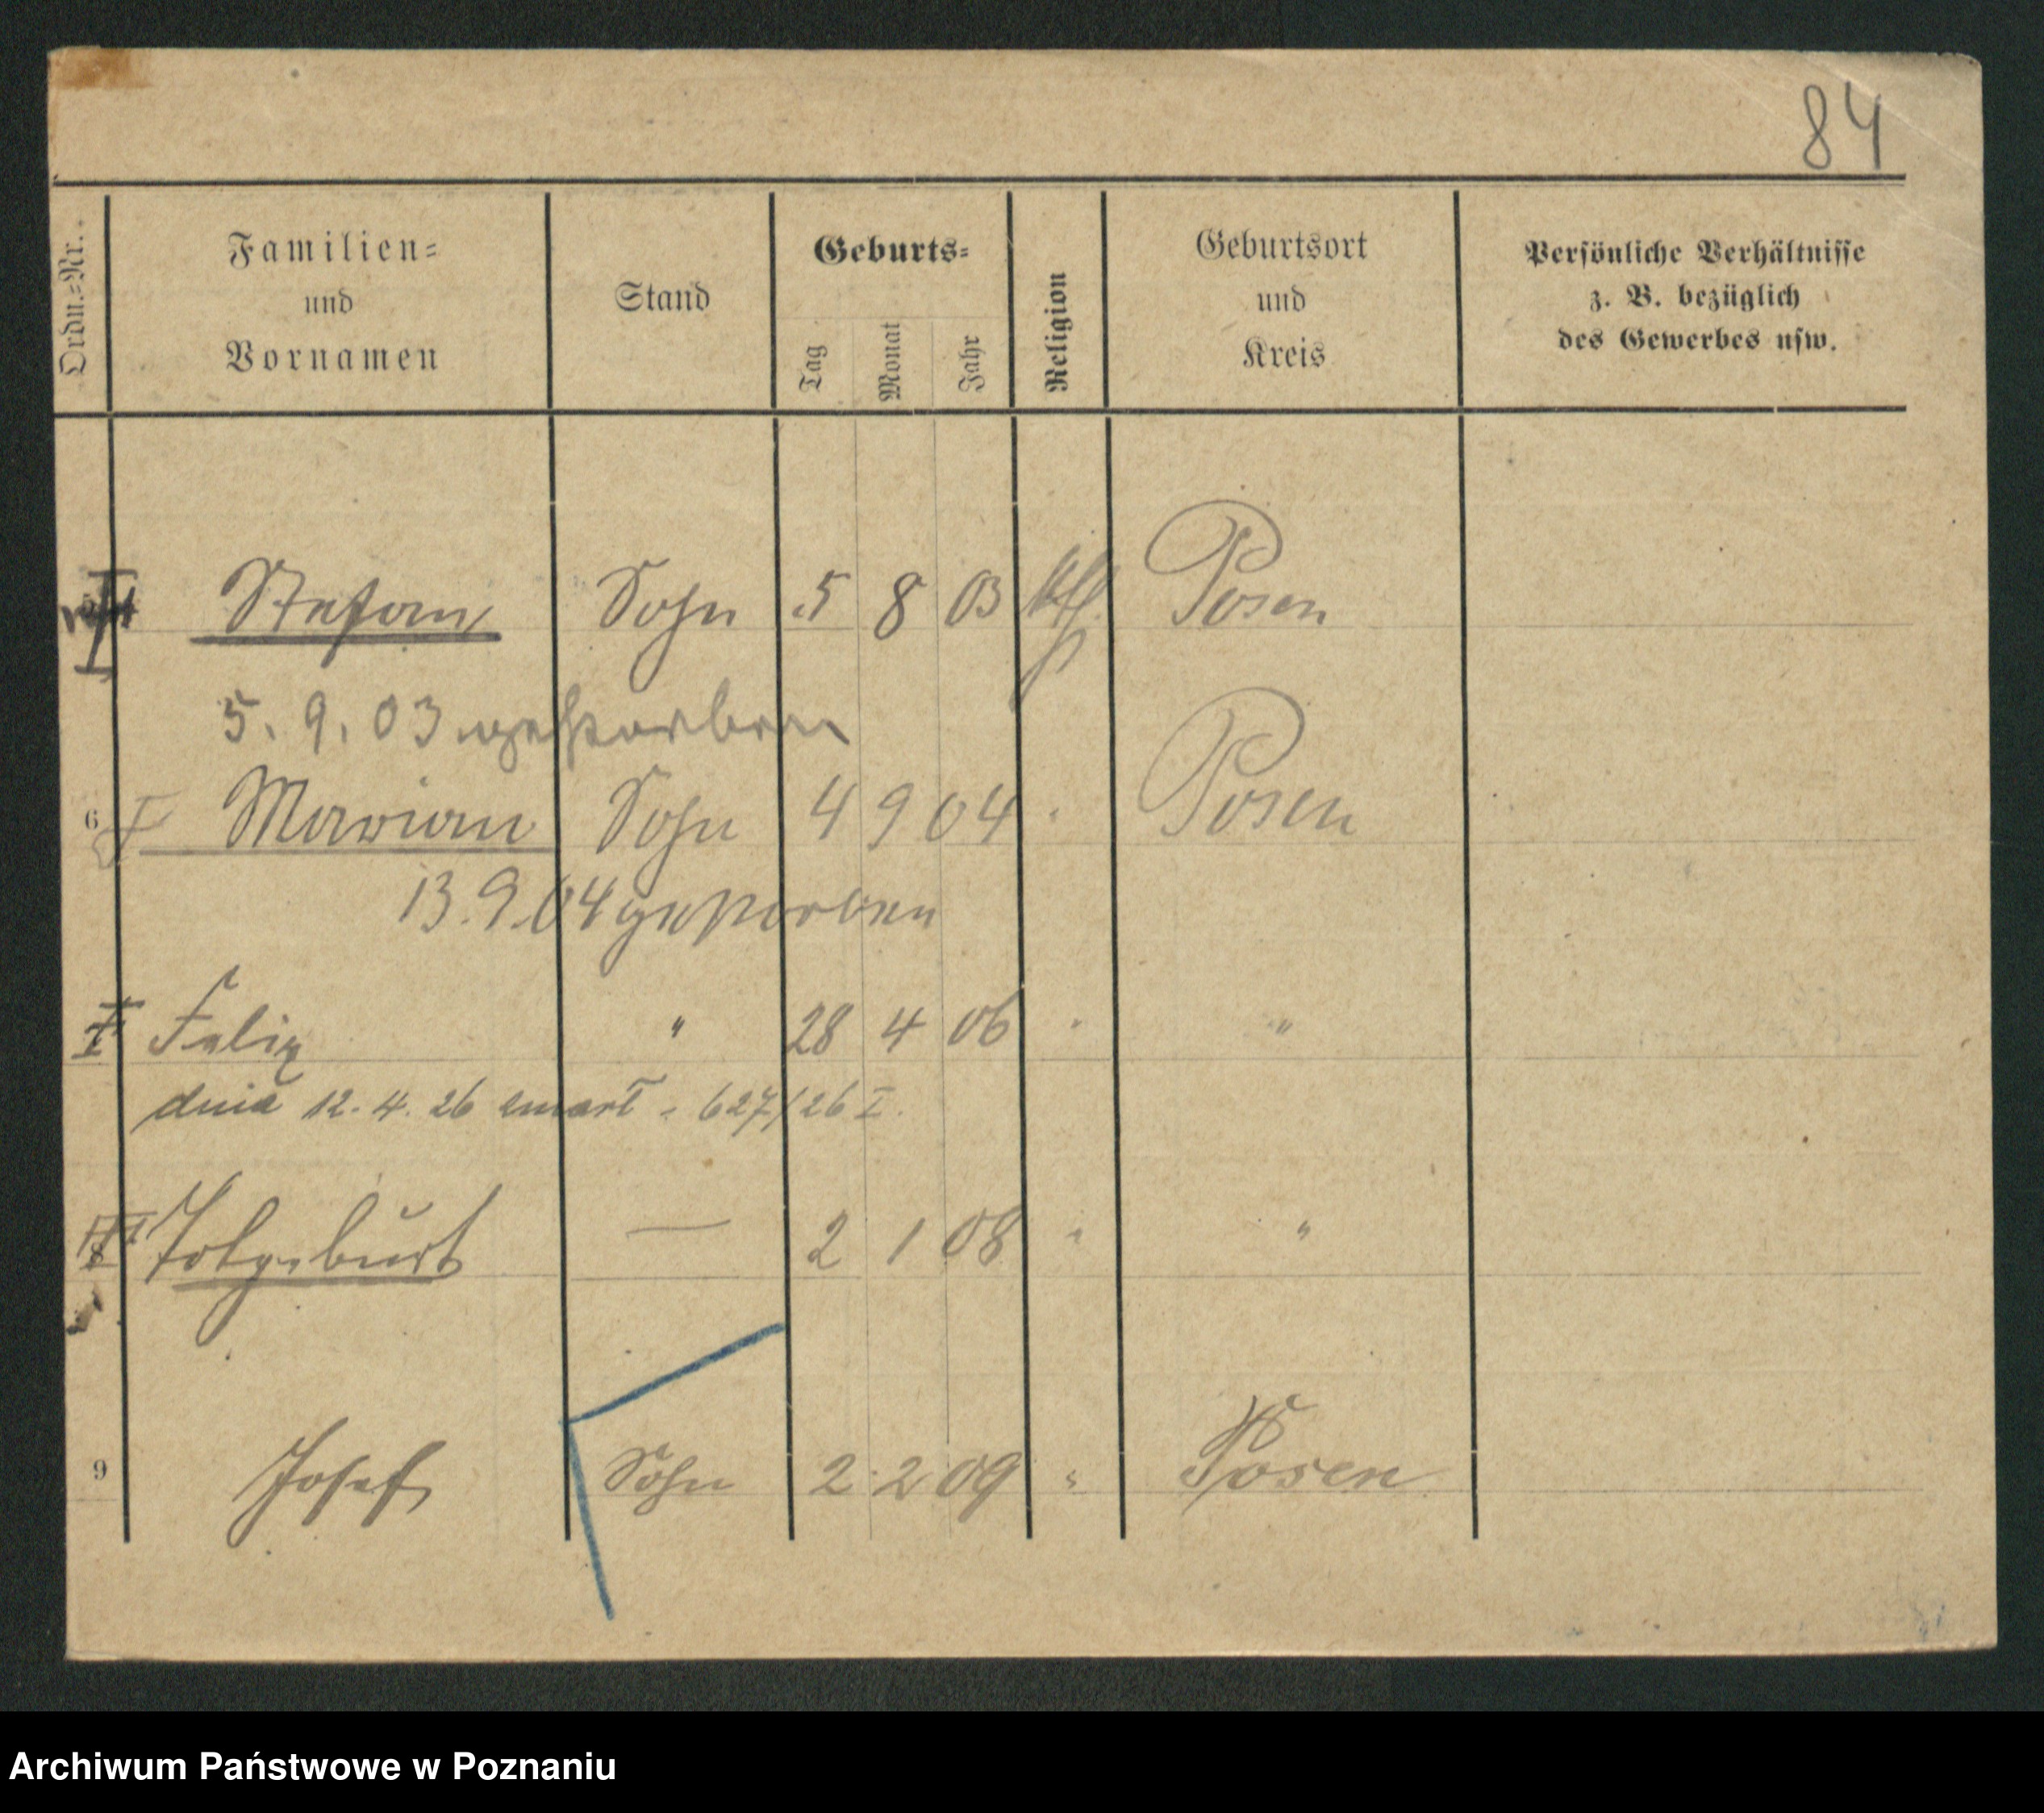 84
Ordn.=Nr.
Familien=
und
Vornamen
Stand
Geburts=
Tag
Monat
Jahr
Religion
Geburtsort
und
Kreis
Persönliche Verhältnisse
z. B. bezüglich
des Gewerbes usw.
Stefan Sohn 5 8 03 kth. Posen
5. 9. 03 gestorben
6 Marian Sohn 4 9 04 " Posen
13.9.04 gestorben
Felix " 28 4 06 " "
dnia 12. 4. 26 zmarł 627/26 I.
8 Totgeburt — 2 1 08 " "
9 Josef Sohn 2 2 09 " Posen
Archiwum Państwowe w Poznaniu